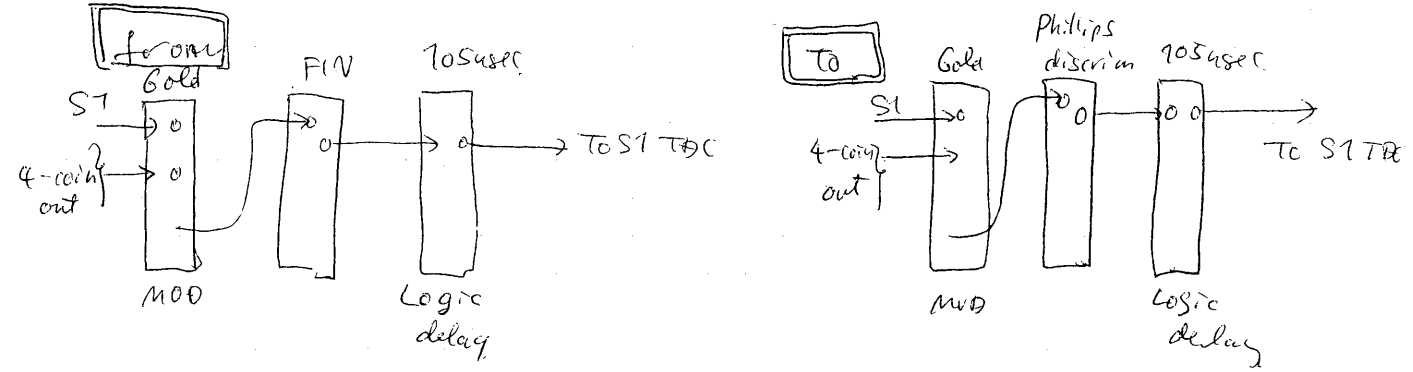 from
Gold
FIN
105usec
S1
4-coin
out
To S1 TDC
MOD
Logic
delay
To
Gold
Phillips
discrim
105usec.
S1
4-coin
out
To S1 TDC
MOD
Logic
delay